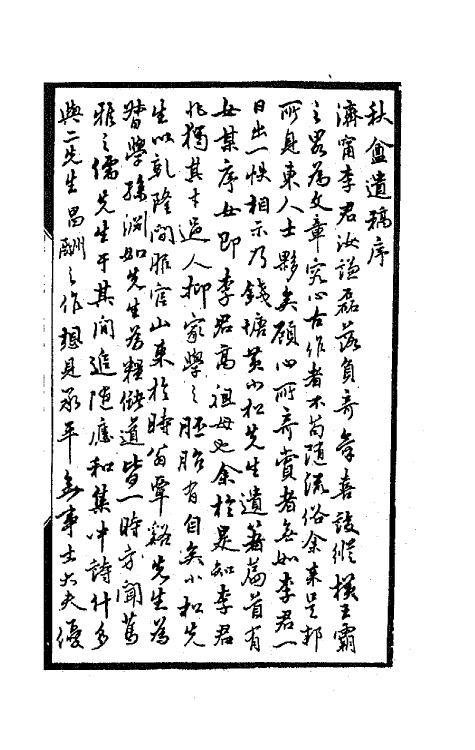 秋盦遺稿序
濟甯李君汝謙磊落負奇氣喜談縱橫王霸
之畧為文章究心古作者不苟隨流俗余來是邦
所見東人士夥矣顧心所奇賞者無如李君一
日出一帙相示乃錢塘黃小松先生遺著篇首有
女某序女即李君高祖母也余於是知李君
非獨其才過人抑家學之胚胎有自矣小松先
生以乾隆間服官山東於時翁覃谿先生為
督學孫淵如先生為糧儲道皆一時方聞篤
雅之儒先生于其間追隨應和集中詩什多
與二先生倡酬之作想見承平無事士大夫優